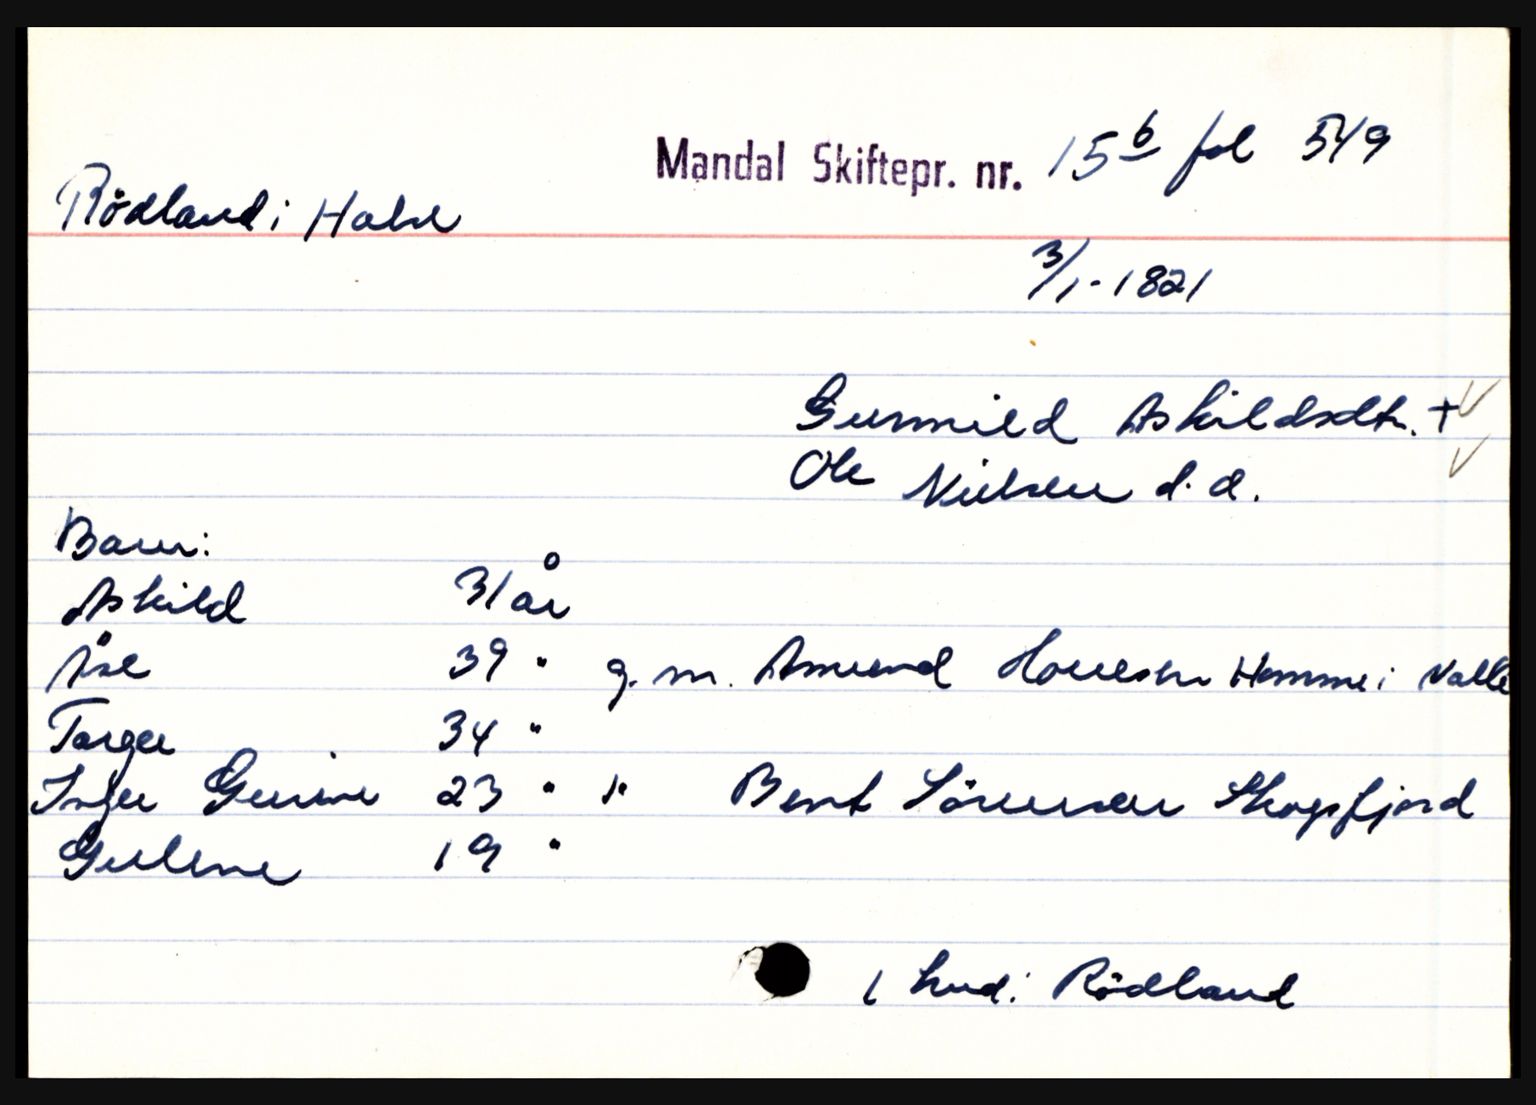 Mandal Skiftepr. nr. 15b fol 549
Rödland i Halse
3/1-1821
Gunnild Askildsdtr. +
Ole Nielsen d.d.
Barn:
Askild 31 år
Åse 39 " g. m. Amund Homme i Valle
Targer 34 "
Inger Gurine 23 " " Bent Sörensen Skogsfjord
Guline 19 "
1 hud i Rödland